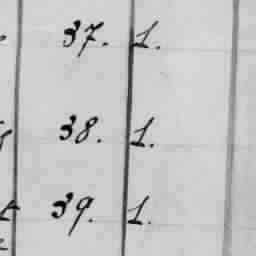 37. 1.
38. 1.
39. 1.